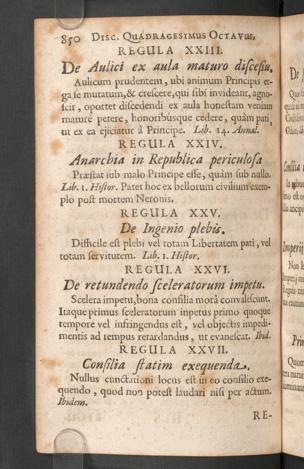 850 DISC. QUADRAGESIMUS OCTAVUS,
REGULA XXIII.
De Aulici ex aula maturo discessu,
Aulicum prudentem, ubi animum Principis er-
ga se mutatum, & crescere, qui sibi invideant, agno-
scit, oportet discedendi ex aula honestam veniam
maturè petere, honoribusque cedere, quàm pati,
ut ex ea ejiciatur à Principe. Lib. 14. Annal.
REGULA XXIV.
Anarchia in Republica periculosa
Præstat sub malo Principe esse, quàm sub nullo.
Lib. 1. Histor. Patet hoc ex bellorum civilium exem-
plo post mortem Neronis.
REGULA XXV.
De Ingenio plebis.
Difficile est plebi vel totam Libertatem pati, vel
totam servitutem. Lib. 1. Histor.
REGULA XXVI.
De retundendo sceleratorum impetu.
Scelera impetu, bona consilia morâ convalescunt.
Itaque primus sceleratorum inpetus primo quoque
tempore vel infringendus est, vel objectis impedi-
mentis ad tempus retardandus, ut evanescat. Ibid.
REGULA XXVII.
Consilia statim exequenda.
Nullus cunctationi locus est in eo consilio exe-
quendo, quod non potest laudari nisi per actum.
Ibidem.
RE-